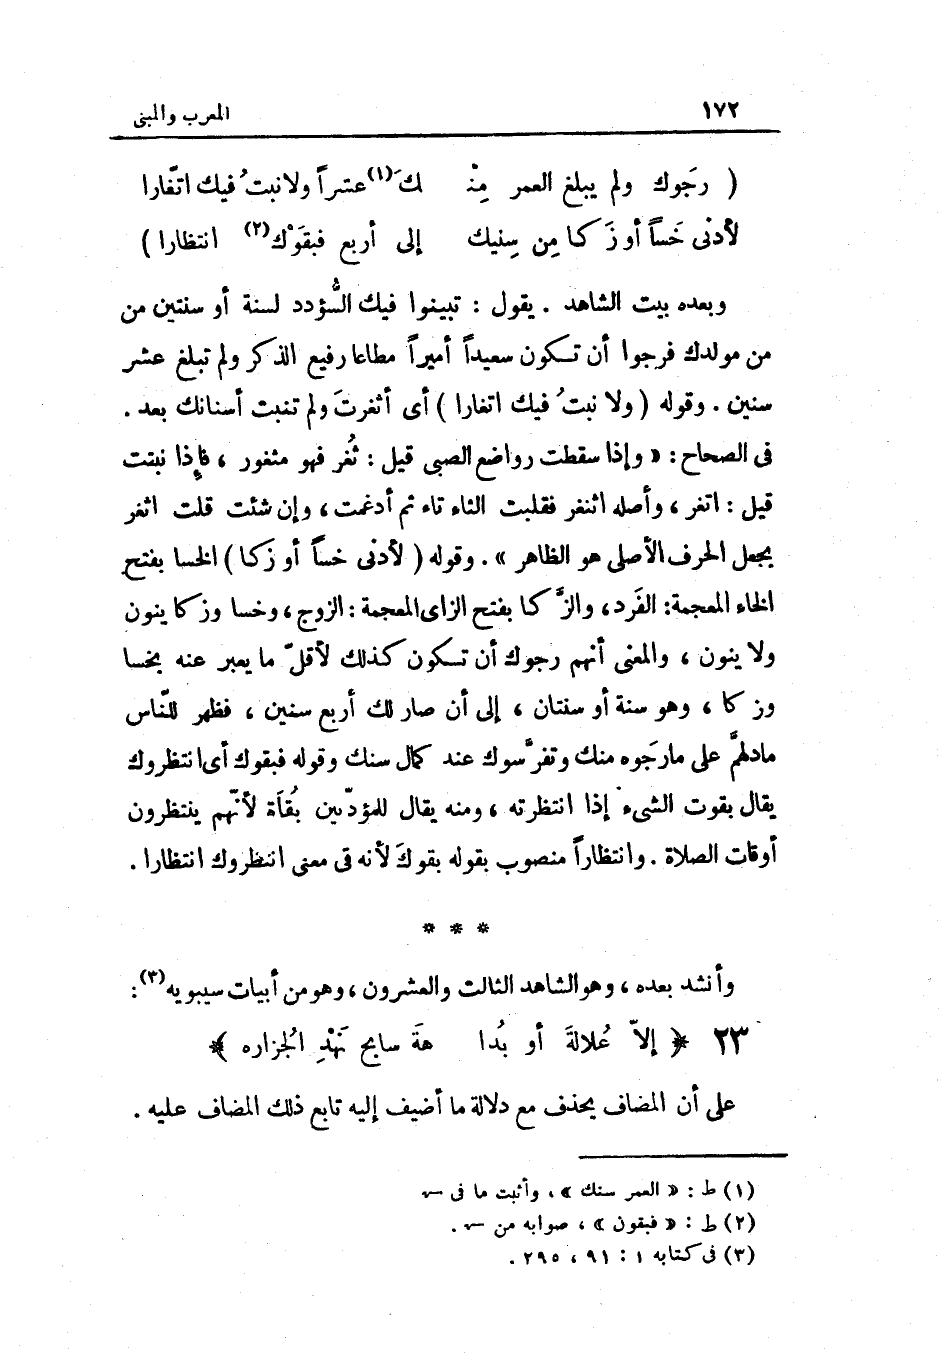 ١٧٢ المعرب والمبنى
( رجَوك ولم يبلغ العمر مِنْـ لكَ(١) عشراً ولا نبتُ فيك اتّغارا
لأدنْى خَساً أو زَكا مِن سِنيك إلى أربع فبقَوْك(٢) انتظارا )
وبعده بيت الشاهد . يقول : تبينوا فيك السُّؤدد لسنة أو سنتين من
من مولدك فرجوا أن تكون سعيداً أميراً مطاعا رفيع الذكر ولم تبلغ عشر
سنين . وقوله ( ولا نبتُ فيك اتغارا ) أى أثغرتَ ولم تنبت أسنانك بعد .
فى الصحاح : « وإذا سقطت رواضع الصبى قيل : ثُغر فهو مثغور ، فإذا نبتت
قيل : اتغر ، وأصله اثتغر فقلبت الثاء تاء ثم أدغمت ، وإن شئت قلت اثغر
بجعل الحرف الأصلى هو الظاهر » . وقوله ( لأدنى خساً أو زكا ) الخسا بفتح
الخاء المعجمة : الفَرد ، والزَّكا بفتح الزاى المعجمة : الزوج ، وخسا وزكا ينون
ولا ينون ، والمعنى أنهم رجوك أن تكون كذلك لأقلّ ما يعبر عنه بخسا
وزكا ، وهو سنة أو سنتان ، إلى أن صار لك أربع سنين ، فظهر للنّاس
مادلهمَّ على مارجَوه منك وتفرَّسوك عند كمال سنك وقوله فبقوك أى انتظروك
يقال بقوت الشىء إذا انتظرته ، ومنه يقال للمؤذّنين بُقَاة لأنّهم ينتظرون
أوقات الصلاة . وانتظاراً منصوب بقوله بقوكَ لأنه فى معنى انتظروك انتظارا .
* * *
وأنشد بعده ، وهو الشاهد الثالث والعشرون ، وهو من أبيات سيبويه(٣) :
٢٣ ﴿ إلاّ عُلالةَ أو بُدا هةَ سابح نَهْدِ الجُزاره ﴾
على أن المضاف يحذف مع دلالة ما أضيف إليه تابع ذلك المضاف عليه .
(١) ط : « العمر سنك » ، وأثبت ما فى سـ
(٢) ط : « فبقون » ، صوابه من سـ .
(٣) فى كتابه ١ : ٩١ ، ٢٩٥ .